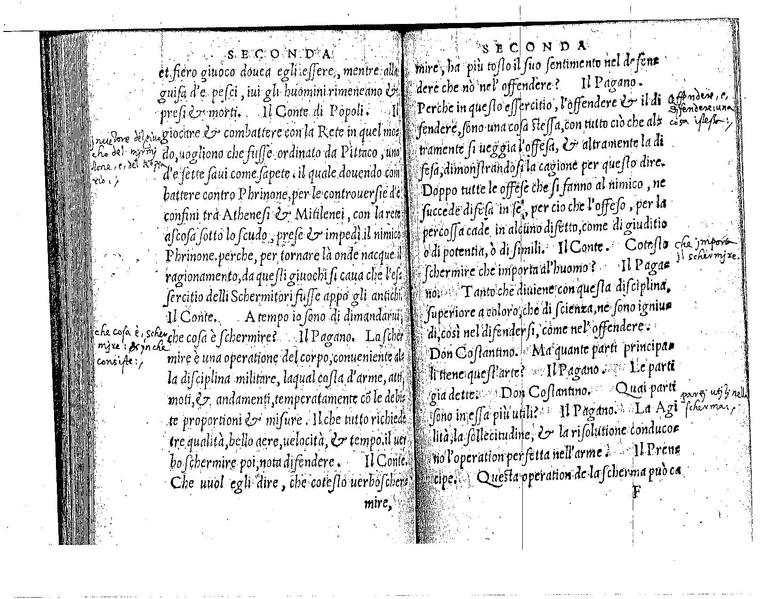 SECONDA
et fiero giuoco douea egli essere, mentre alla
guisa d'e pesci, iui gli huomini rimeneano &
presi & morti. Il Conte di Popoli. Il
giocare & combattere con la Rete in quel mo=
do, uogliono che fusse ordinato da Pittaco, uno
d'e sette saui come sapete, il quale douendo com
battere contro Phrinone, per le controuersie d'e
confini trà Athenesi & Mitilenei, con la rete
ascosa sotto lo scudo, prese & impedì il nimico
Phrinone. perche, per tornare là onde nacque il
ragionamento, da questi giuochi si caua che l'es=
sercitio delli Schermitori fusse appò gli antichi.
Il Conte. A tempo io sono di dimandarui,
che cosa è schermire? Il Pagano. Lo scher
mire è una operatione del corpo, conueniente al
la disciplina militare, laqual costa d'arme, atti,
moti, & andamenti, temperatamente cō le debi=
te proportioni & misure. Il che tutto richiede
tre qualità, bello aere, uelocità, & tempo. il uer
bo schermire poi, nota difendere. Il Conte.
Che uuol egli dire, che cotesto uerbo scher=
mire,
che cosa è scher
mire: & in che
consiste:,
SECONDA
mire, ha più tosto il suo sentimento nel defen=
dere che nō nel'offendere? Il Pagano.
Perche in questo essercitio, l'offendere & il di
fendere, sono una cosa stessa, con tutto ciò che al=
tramente si ueggia l'offesa, & altramente la di
fesa, dimonstrandosi la cagione per questo dire.
Doppo tutte le offese che si fanno al nimico, ne
succede difesa in se, per cio che l'offeso, per la
percossa cade in alcuno difetto, come di giuditio
ò di potentia, ò di simili. Il Conte. Cotesto
schermire che importa al'huomo? Il Paga=
no. Tanto che diuiene con questa disciplina,
superiore a coloro, che di scienza, ne sono igniu=
di, così nel difendersi, come nel'offendere.
Don Costantino. Ma quante parti principa=
li tiene quest'arte? Il Pagano. Le parti
gia dette. Don Costantino. Quai parti
sono in essa più utili? Il Pagano. La Agi
lità, la sollecitudine, & la risolutione conduco=
no l'operation perfetta nell'arme. Il Pren=
cipe. Questa operation de la scherma può ca
F
offendere, e,
diffendere una
cosa istessa;,
che importa
il schermire.
parti utili nella
scherma;,